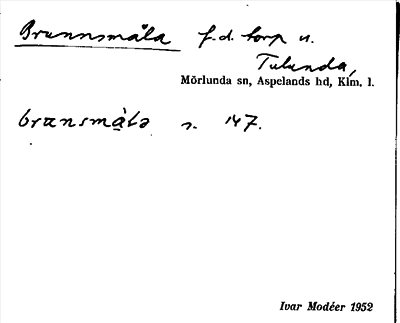 Brunnsmåla f.d. torp u.
Tulunda,
Mörlunda sn, Aspelands hd, Klm. l.
brunsmå̀la s. 147.
Ivar Modéer 1952